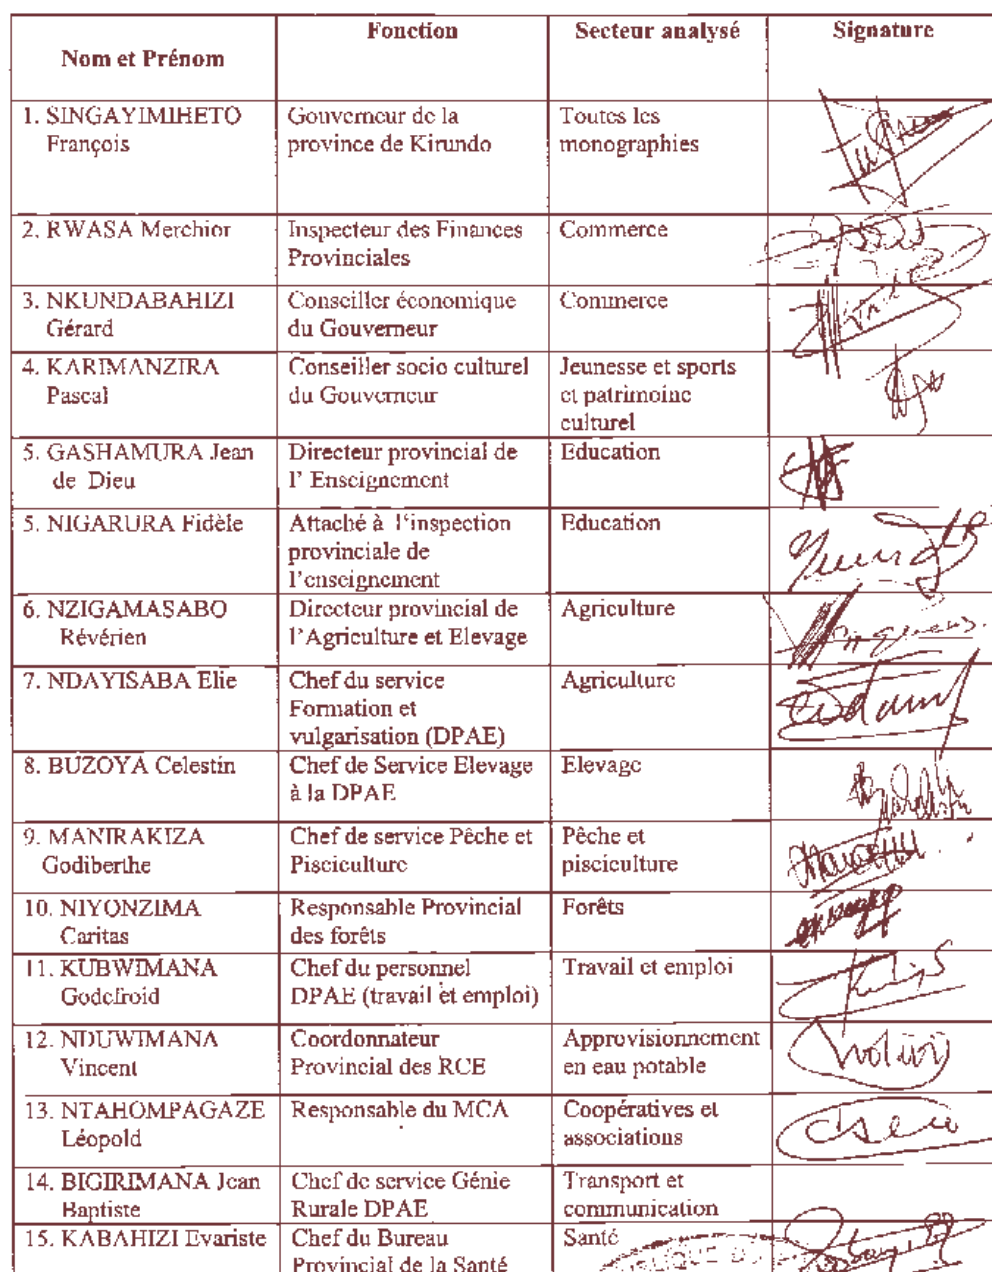 Nom et Prénom
Fonction
Secteur analysé
Signature
1. SINGAYIMIHETO
François
Gouverneur de la
province de Kirundo
Toutes les
monographies
2. RWASA Merchior
Inspecteur des Finances
Provinciales
Commerce
3. NKUNDABAHIZI
Gérard
Conseiller économique
du Gouverneur
Commerce
4. KARIMANZIRA
Pascal
Conseiller socio culturel
du Gouverneur
Jeunesse et sports
et patrimoine
culturel
5. GASHAMURA Jean
de Dieu
Directeur provincial de
l' Enseignement
Education
5. NIGARURA Fidèle
Attaché à l'inspection
provinciale de
l'enseignement
Education
6. NZIGAMASABO
Révérien
Directeur provincial de
l'Agriculture et Elevage
Agriculture
7. NDAYISABA Elie
Chef du service
Formation et
vulgarisation (DPAE)
Agriculture
8. BUZOYA Celestin
Chef de Service Elevage
à la DPAE
Elevage
9. MANIRAKIZA
Godiberthe
Chef de service Pêche et
Pisciculture
Pêche et
pisciculture
10. NIYONZIMA
Caritas
Responsable Provincial
des forêts
Forêts
11. KUBWIMANA
Godefroid
Chef du personnel
DPAE (travail et emploi)
Travail et emploi
12. NDUWIMANA
Vincent
Coordonnateur
Provincial des RCE
Approvisionnement
en eau potable
13. NTAHOMPAGAZE
Léopold
Responsable du MCA
Coopératives et
associations
14. BIGIRIMANA Jean
Baptiste
Chef de service Génie
Rurale DPAE
Transport et
communication
15. KABAHIZI Evariste
Chef du Bureau
Provincial de la Santé
Santé